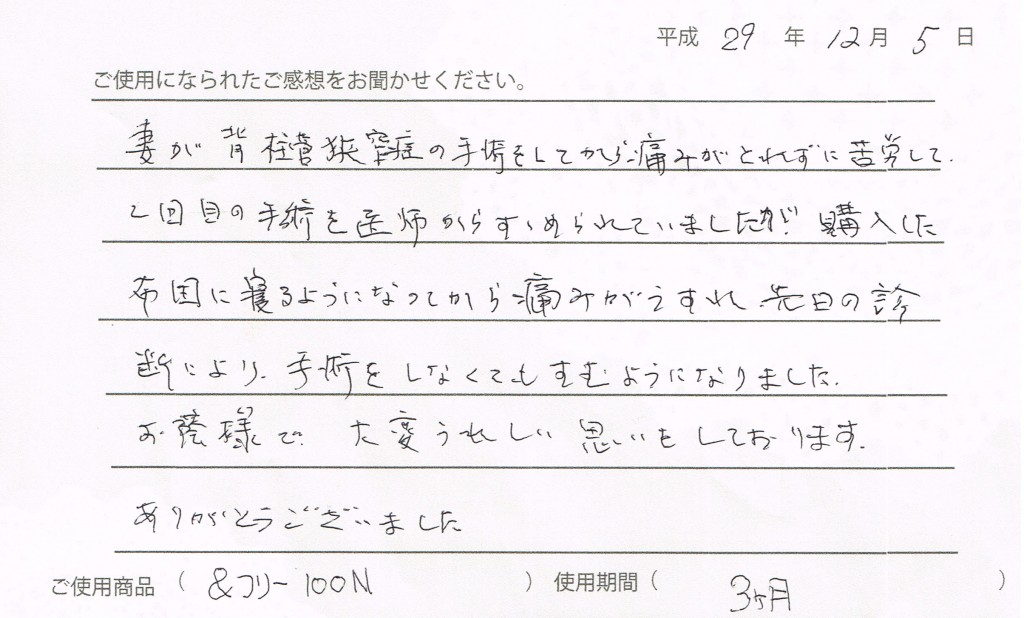 平成 29 年 12月 5 日
ご使用になられたご感想をお聞かせください。
妻が脊柱管狭窄症の手術をしてから痛みがとれずに苦労して、
2回目の手術を医師からすゝめられていましたが、購入した
布団に寝るようになってから痛みがうすれ、先日の診
断により、手術をしなくてもすむようになりました。
お蔭様で、大変うれしい思いをしております。
ありがとうございました
ご使用商品 ( &フリー100N ) 使用期間 ( 3ヶ月 )